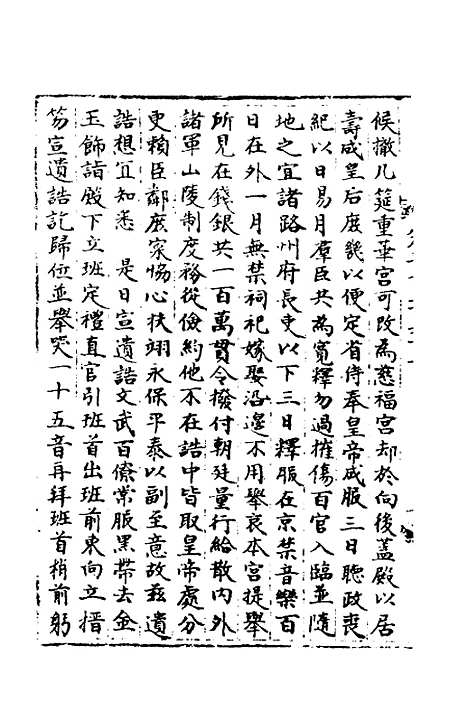 候撤几筵重華宮可改為慈福宮却於向後蓋殿以居
壽成皇后庶幾以便定省侍奉皇帝成服三日聽政喪
紀以日易月羣臣共為寬釋勿過摧傷百官入臨並隨
地之宜諸路州府長吏以下三日釋服在京禁音樂百
日在外一月無禁祠祀嫁娶沿邊不用舉哀本宮提舉
所見在錢銀共一百萬貫令撥付朝廷量行給散內外
諸軍山陵制度務從儉約他不在誥中皆取皇帝處分
更賴臣鄰庶家恊心扶翊永保平泰以副至意故兹遺
誥想宜知悉　是日宣遺誥文武百僚常服黑帶去金
玉飾詣殿下立班定禮直官引班首出班前東向立搢
笏宣遺誥訖歸位並舉哭一十五音再拜班首稍前躬